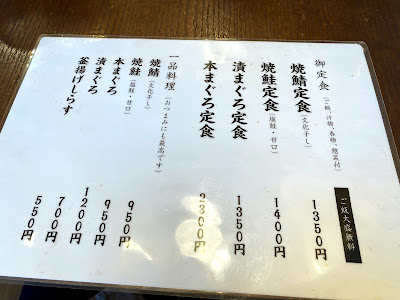 御定食（ご飯、汁物、香物、惣菜付）
ご飯大盛無料
焼鯖定食（文化干し） 1350円
焼鮭定食（塩鮭・甘口） 1400円
漬まぐろ定食 1350円
本まぐろ定食 2300円
一品料理（おつまみにも最高です）
焼鯖（文化干し） 950円
焼鮭（塩鮭・甘口） 950円
本まぐろ 1200円
漬まぐろ 700円
釜揚げしらす 550円